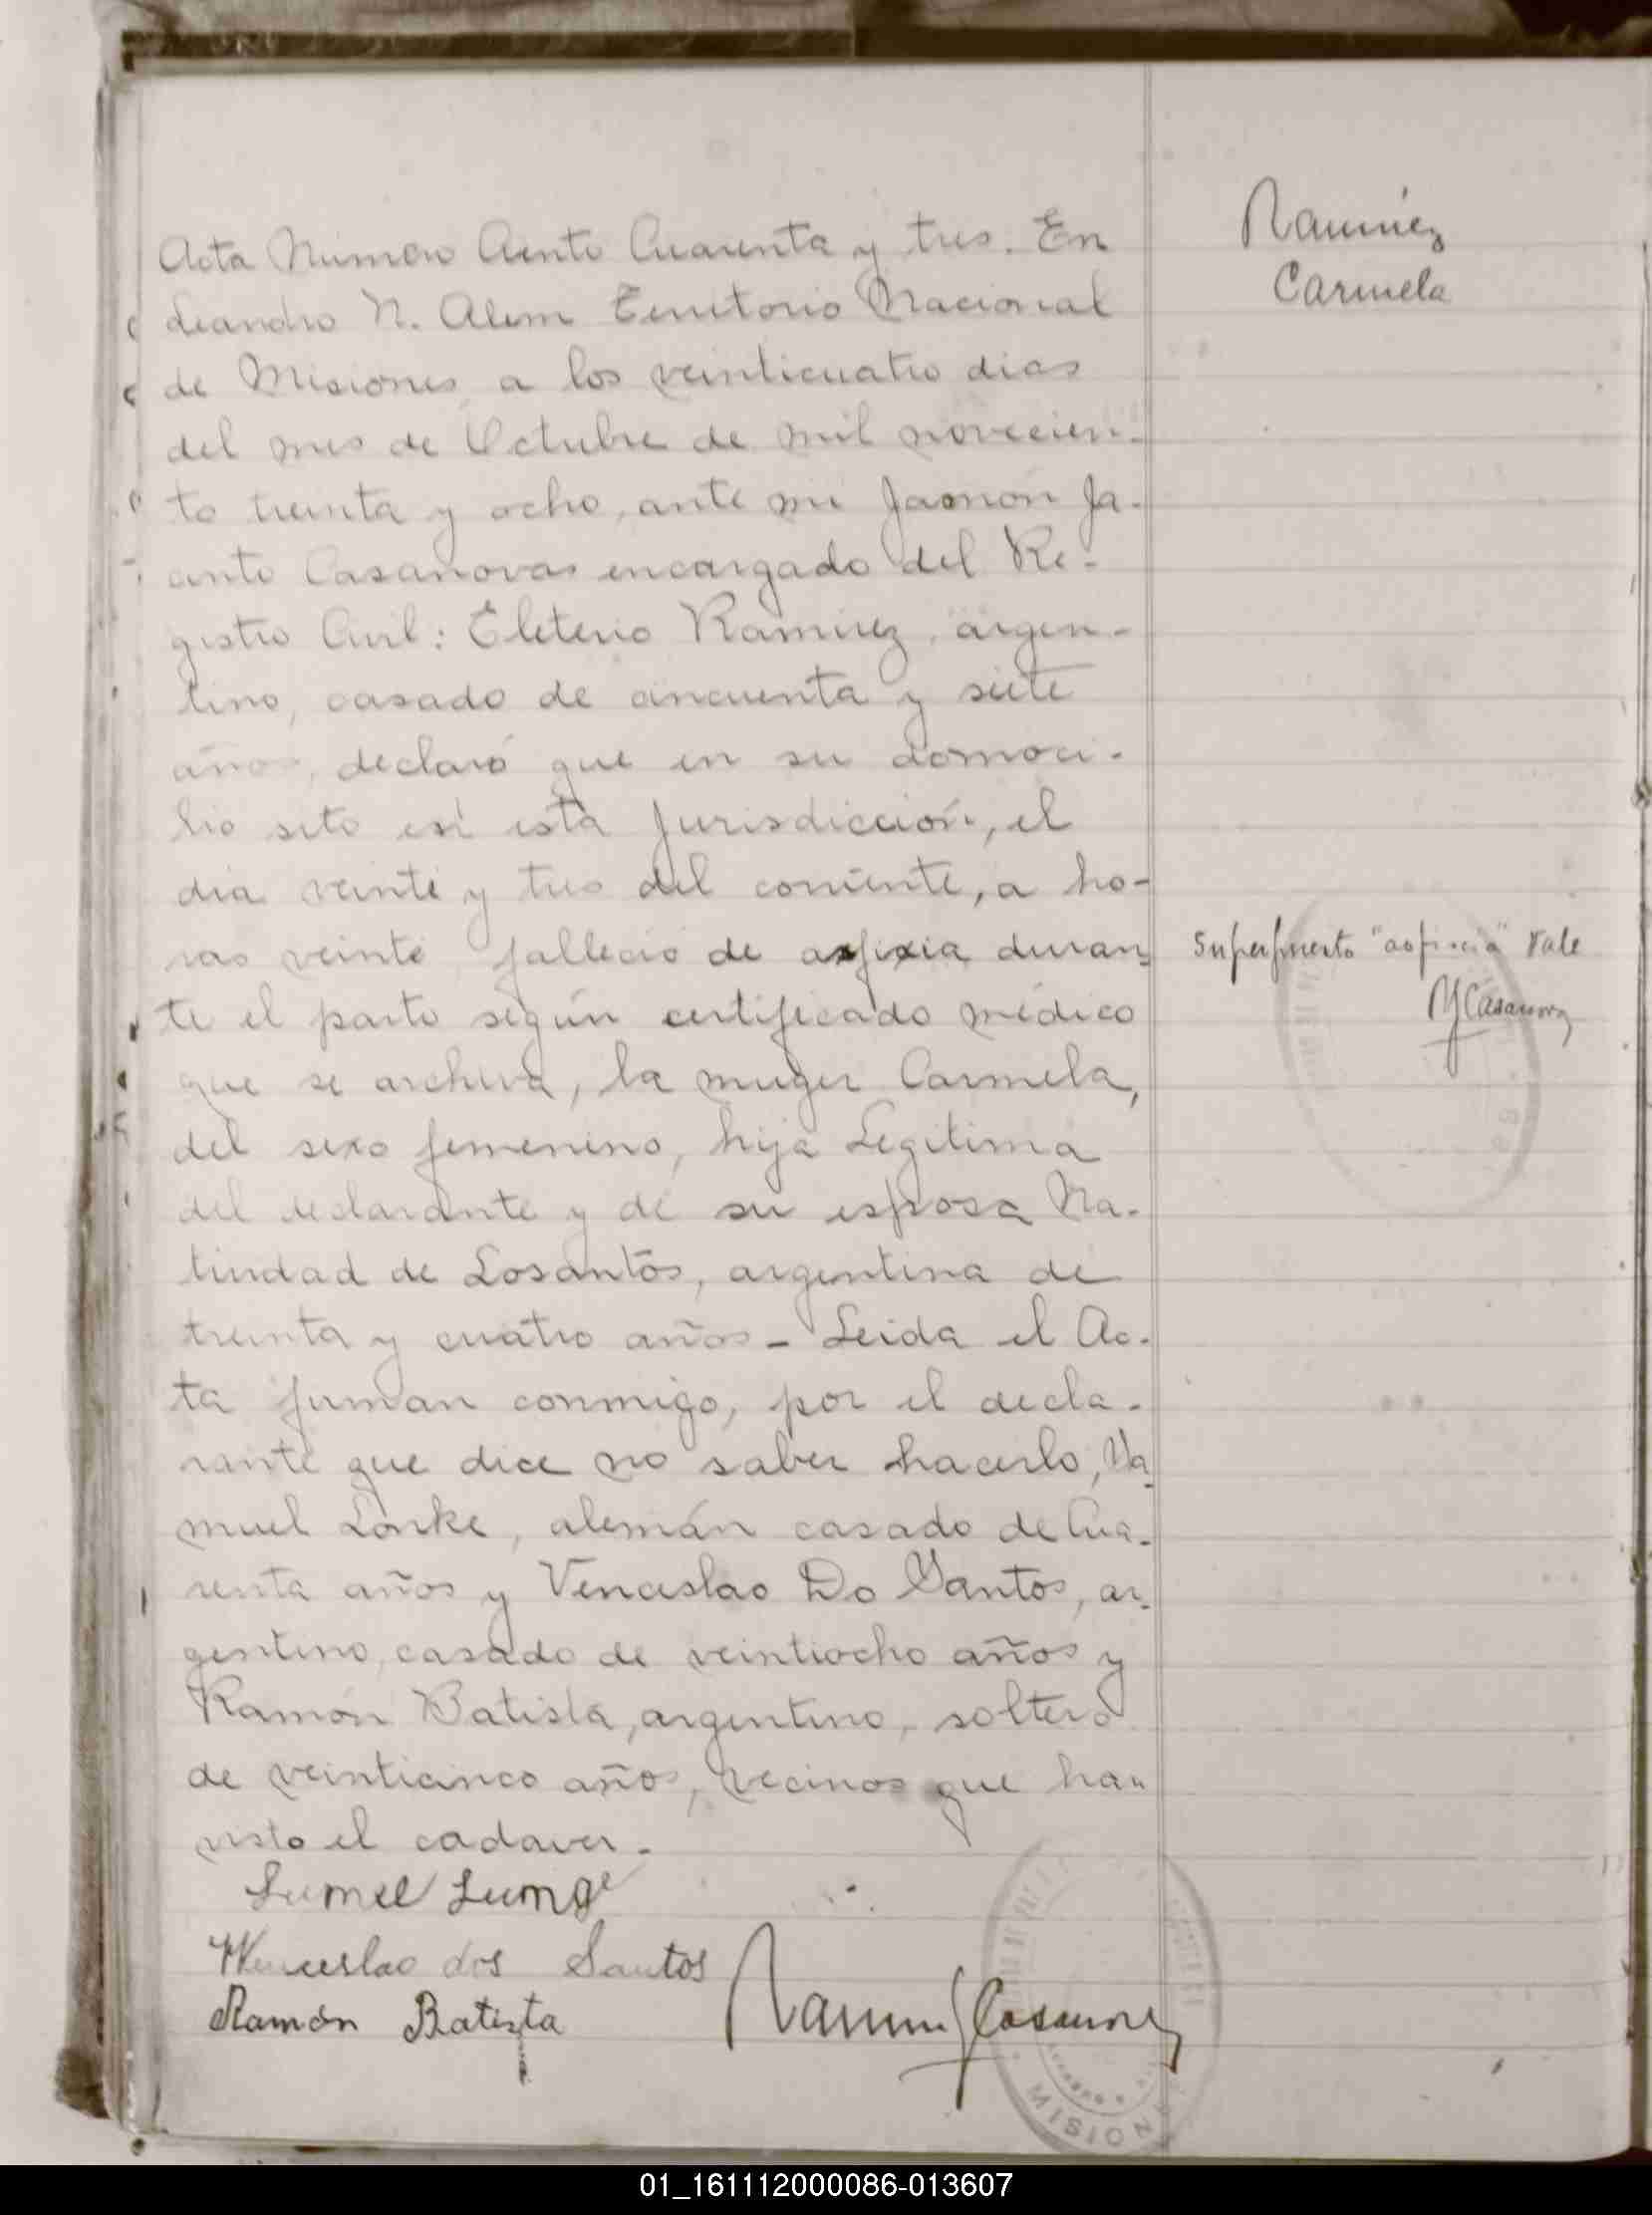 Ramirez
Carmela
Acta Número Ciento Cuarenta y tres. En
Leandro N. Alem Territorio Nacional
de Misiones, a los veinticuatro dias
del mes de Octubre de mil novecien-
to treinta y ocho, ante mi Jamón Ja-
cinto Casanovas encargado del Re-
gistro Civil: Eleterio Ramirez, argen-
tino, casado de cincuenta y siete
años, declaró que en su domoci-
lio sito en esta Jurisdiccion, el
dia veinte y tres del corriente, a ho-
ras veinte falleció de asfixia duran-
te el parto según certificado médico
que se archiva, la muger Carmela,
del sexo femenino, hija Legitima
del declarante y de su esposa Na-
tividad de Losantos, argentina de
treinta y cuatro años - Leida el Ac-
ta firman conmigo, por el decla-
rante que dice no saber hacerlo,
muel Lonke, alemán casado de Cua-
renta años y Venceslao Do Santos, ar-
gentino, casado de veintiocho años y
Ramón Batista, argentino, soltero
de veinticinco años, vecinos que han
visto el cadaver.
Wenceslao dos Santos
Ramón Batista
Ramon J Casanova
Superpuesto "asfixia" Vale
RJCasanova
MISIONES
01_161112000086-013607